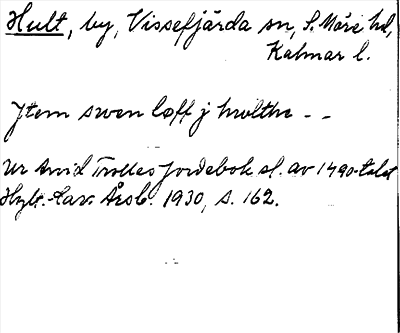 Hult, by, Vissefjärda sn, S. Möre hd,
Kalmar l.
Jtem swen loff j hwlthe - -
Ur Arvid Trolles Jordebok sl. av 1490-talet
Hylt.-Cav. Årsb. 1930, s. 162.